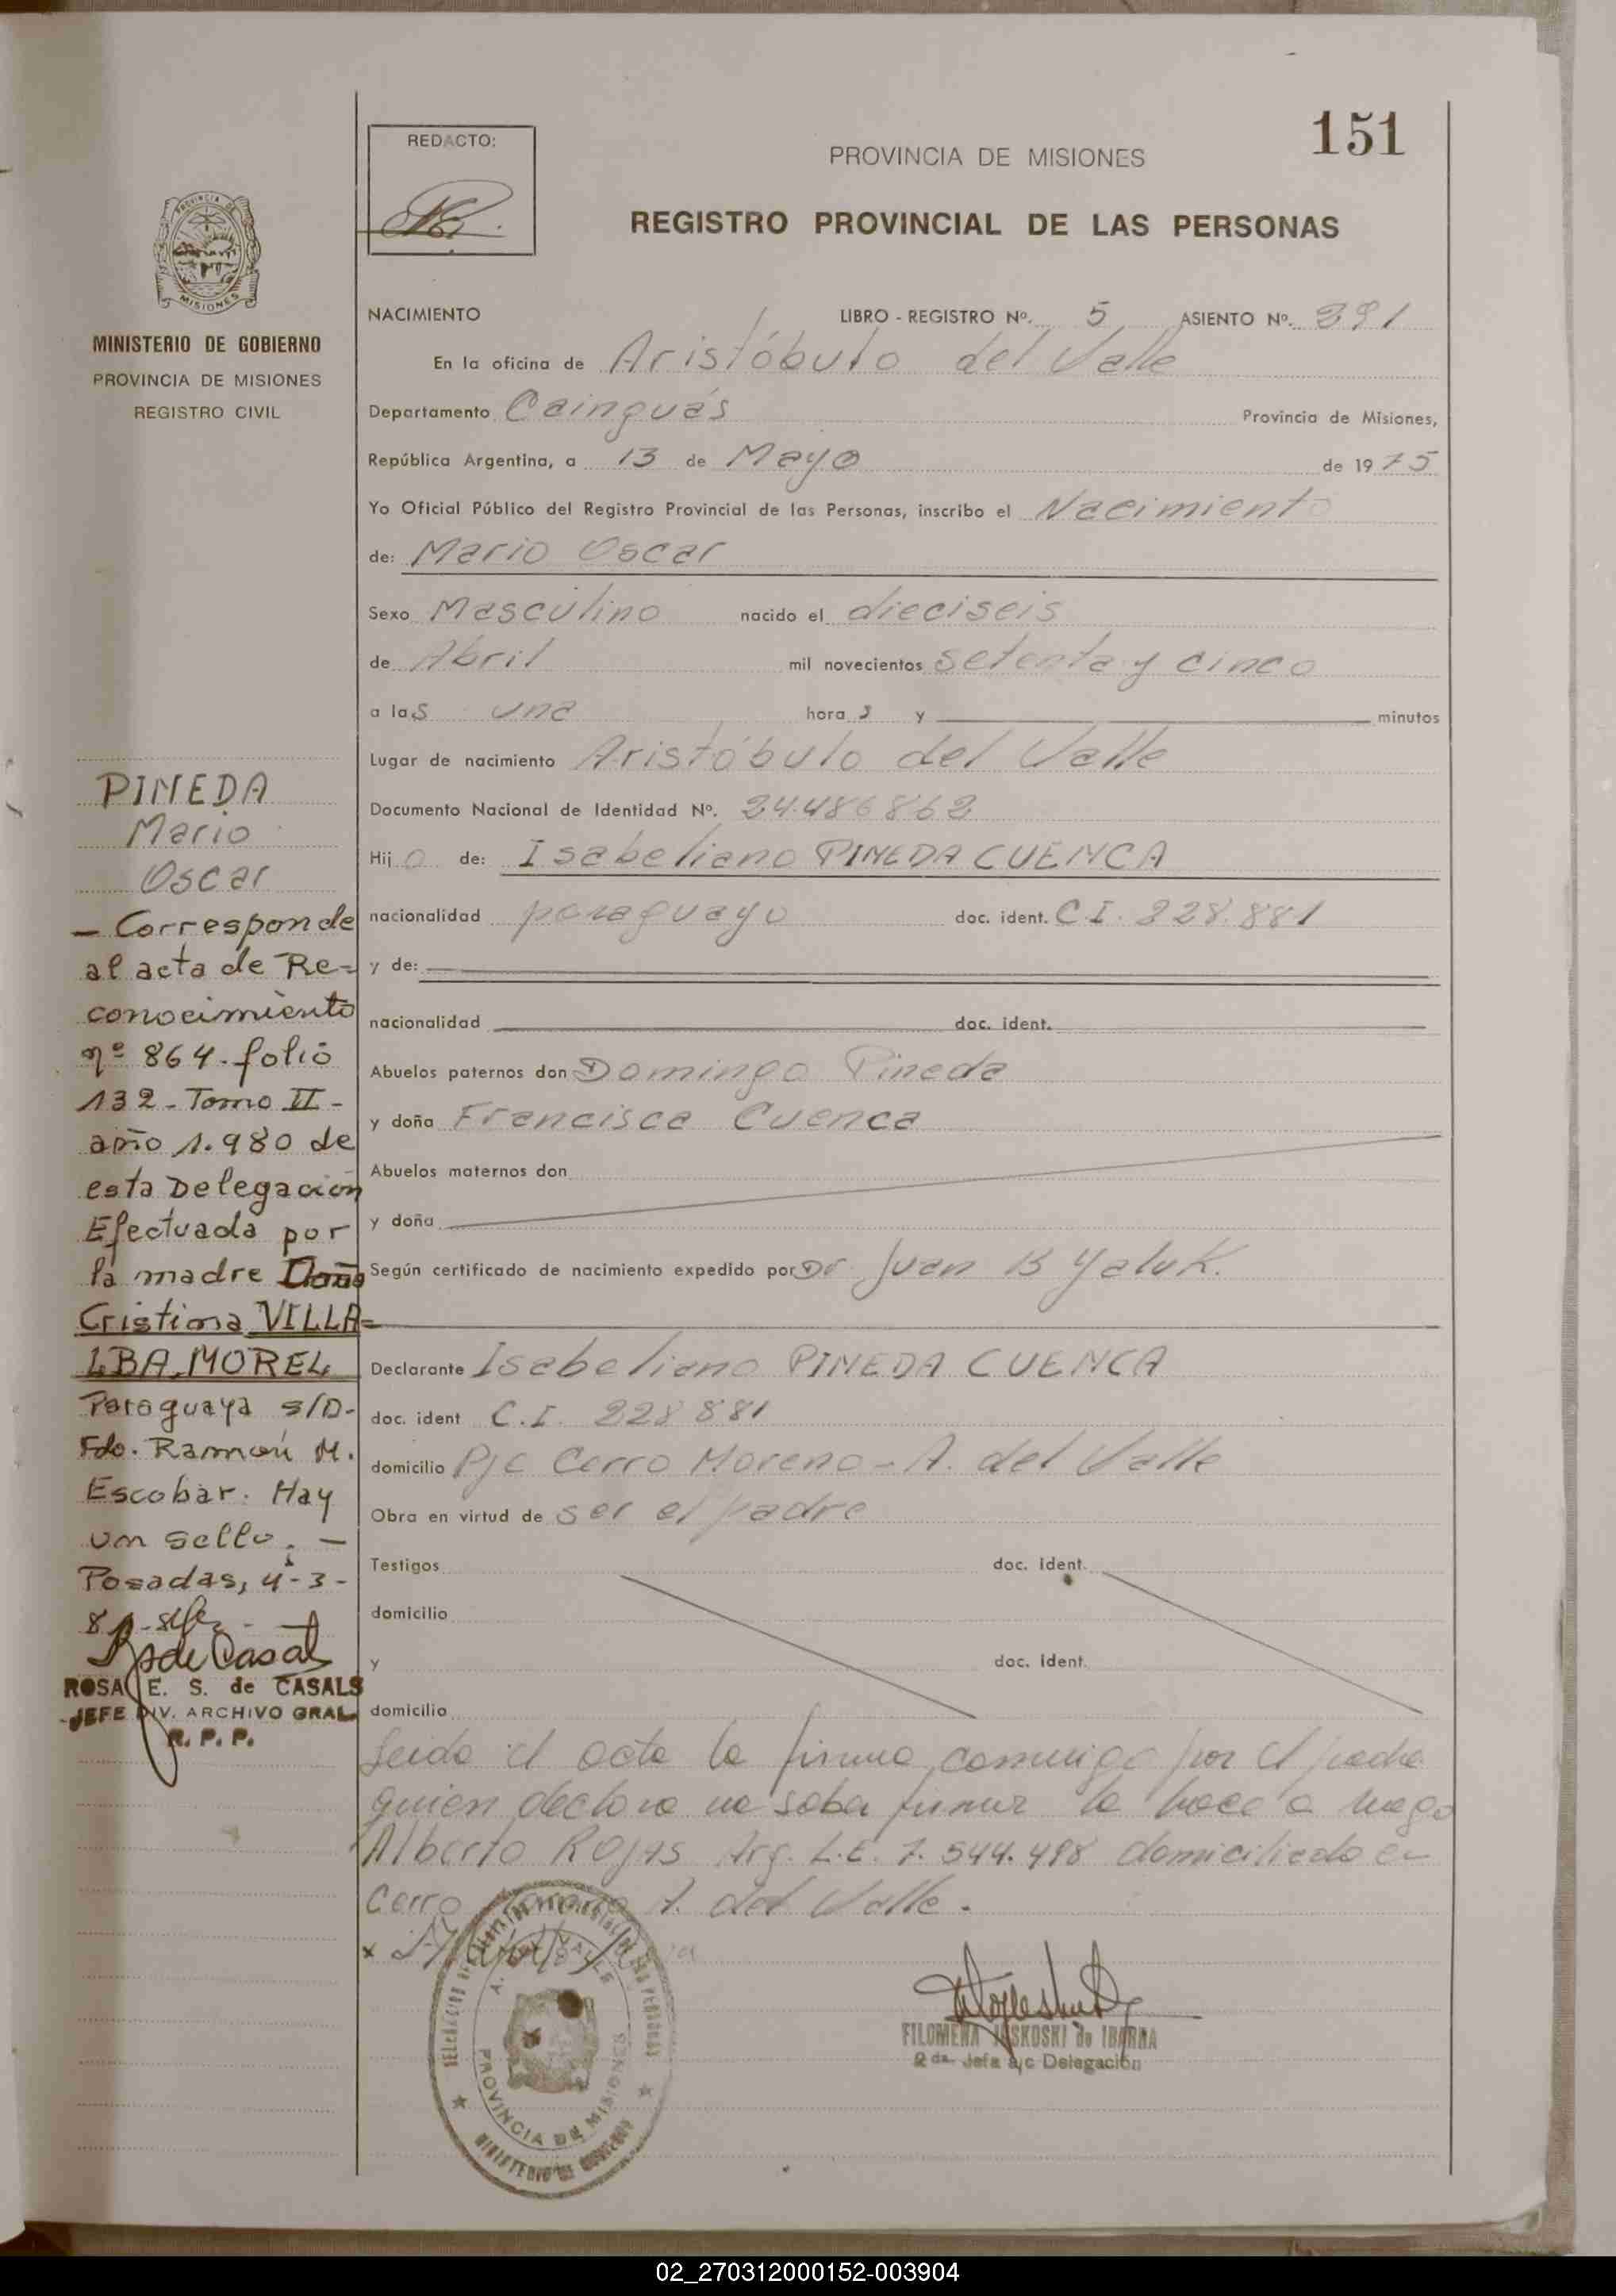 151
REDACTO:
PROVINCIA DE MISIONES
REGISTRO PROVINCIAL DE LAS PERSONAS
MISIONES
MINISTERIO DE GOBIERNO
PROVINCIA DE MISIONES
REGISTRO CIVIL
NACIMIENTO LIBRO - REGISTRO Nº. 5 ASIENTO Nº. 391
En la oficina de Aristóbulo del Valle
Departamento Cainguás Provincia de Misiones,
República Argentina, a 13 de Mayo de 1975
Yo Oficial Público del Registro Provincial de las Personas, inscribo el Nacimiento
de: Mario Oscar
Sexo Masculino nacido el dieciseis
de Abril mil novecientos setenta y cinco
a las una hora s y minutos
Lugar de nacimiento Aristóbulo del Valle
Documento Nacional de Identidad Nº. 24.486862
Hijo de: Isabeliano PINEDA CUENCA
nacionalidad paraguayo doc. ident. C I. 228.881
y de:
nacionalidad doc. ident.
Abuelos paternos don Domingo Pineda
y doña Francisca Cuenca
Abuelos maternos don
y doña
Según certificado de nacimiento expedido por Dr Juan B Yaluk.
Declarante Isabeliano PINEDA CUENCA
doc. ident C.I. 228 881
domicilio Pje Cerro Moreno - A. del Valle
Obra en virtud de ser el padre
Testigos doc. ident.
domicilio
y doc. ident.
domicilio
Leida el acta la firma conmigo por el padre
quien declara no saber firmar lo hace a ruego
Alberto Rojas Arg. L.E. 7.544.498 domiciliado en
Cerro A. del Valle.
PINEDA
Mario
Oscar
- Corresponde
al acta de Re=
conocimiento
nº 864. folio
132 - Tomo II -
año 1.980 de
esta Delegación
Efectuada por
la madre Doña
Cristina VILLA=
LBA MOREL
Paraguaya s/D-
Fdo. Ramón M.
Escobar. Hay
un sello. -
Posadas, 4-3-
ROSA E. S. de CASALS
JEFE DIV. ARCHIVO GRAL.
R. P. P.
A. DEL VALLE
PROVINCIA DE MISIONES
MINISTERIO DE GOBIERNO
FILOMENA de IBARRA
2 da. Jefa a/c Delegación
02_270312000152-003904